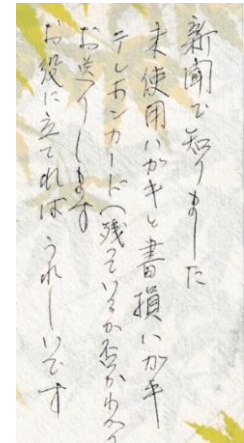 新聞で知りました
未使用ハガキと書損ハガキ
テレホンカード(残っているか否か
お送りします
お役に立てれば うれしいです